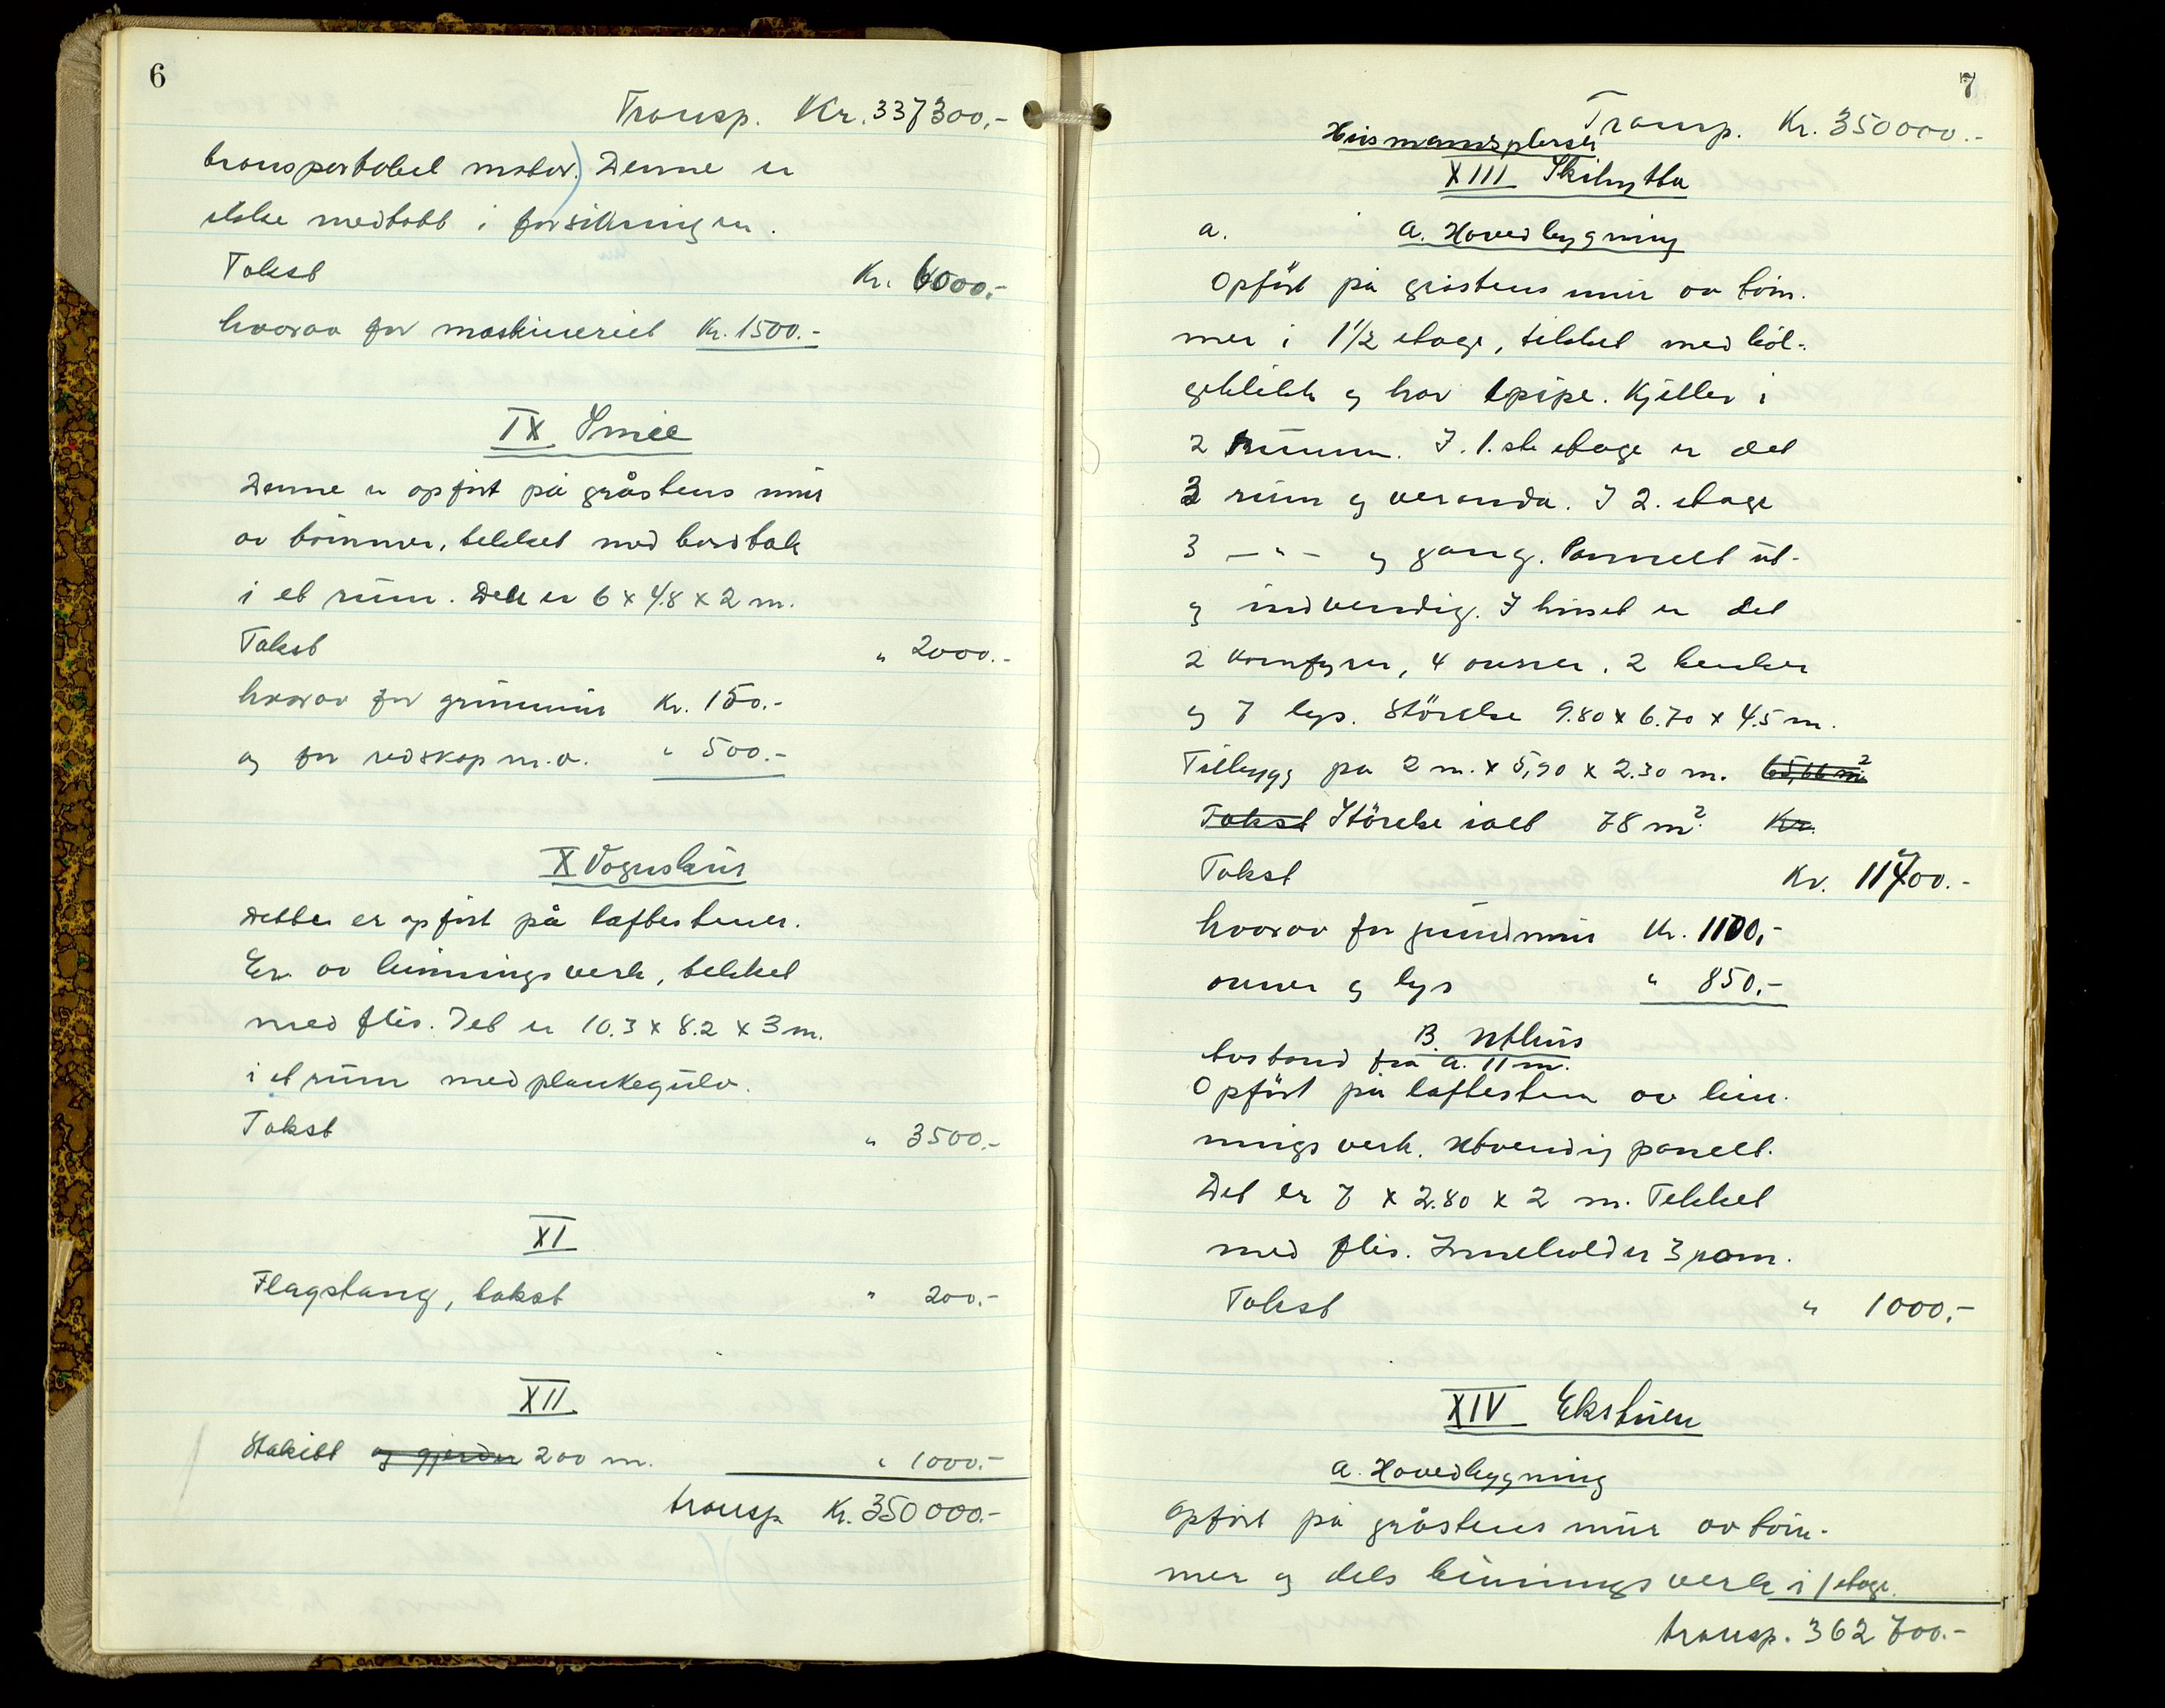 6
Transp. Kr. 337300.-
transportabel motor.) Denne er
ikke medtatt i forsikringen.
Takst Kr. 6000.-
hvorav for maskineriet Kr. 1500.-
IX Smie
Denne er opført på gråstens mur
av tømmer, tekket med bordtak
i et rum. Den er 6 x 4.8 x 2 m.
Takst " 2000.-
hvorav for grunnmur Kr. 150.-
og for redskap m.v. " 500.-
X Vognskur
Dette er opført på løftestener.
Er av binningsverk, tekket
med flis. Det er 10.3 x 8.2 x 3 m.
i et rum med plankegulv.
Takst " 3500.-
XI
Flagstang, takst " 200.-
XII
Stakitt og gjerder 200 m. " 1000.-
transp. Kr. 350000.-
7
Transp. Kr. 350000.-
Husmannsplasser
XIII Skihytta
a. a. Hovedbygning
Opført på gråstens mur av töm-
mer i 1 1/2 etage, tekket med böl-
geblikk og har 1 pipe. Kjeller i
2 rumm. I 1.ste etage er det
3 rum og veranda. I 2. etage
3 - " - og gang. Pannelt ut-
og indvendig. I huset er det
2 komfyrer, 4 ovner, 2 benker
og 7 lys. Störelse 9.80 x 6.70 x 4.5 m.
Tilbygg på 2 m. x 5,90 x 2.30 m. 65,66 m²
Takst Störelse ialt 78 m². Kr.
Takst Kr. 11700.-
hvorav for grundmur Kr. 1100,-
ovner og lys " 850.-
B. Uthus
Avstand fra a. 11 m.
Opført på løftesten av bin-
nings verk. Utvendig panelt.
Det er 7 x 2.80 x 2 m. Tekket
med flis. Inneholder 3 rom.
Takst " 1000.-
XIV Ekstuen
a. Hovedbygning
Opført på gråstens mur av töm-
mer og dels binnings verk i 1 etage.
transp. 362700.-